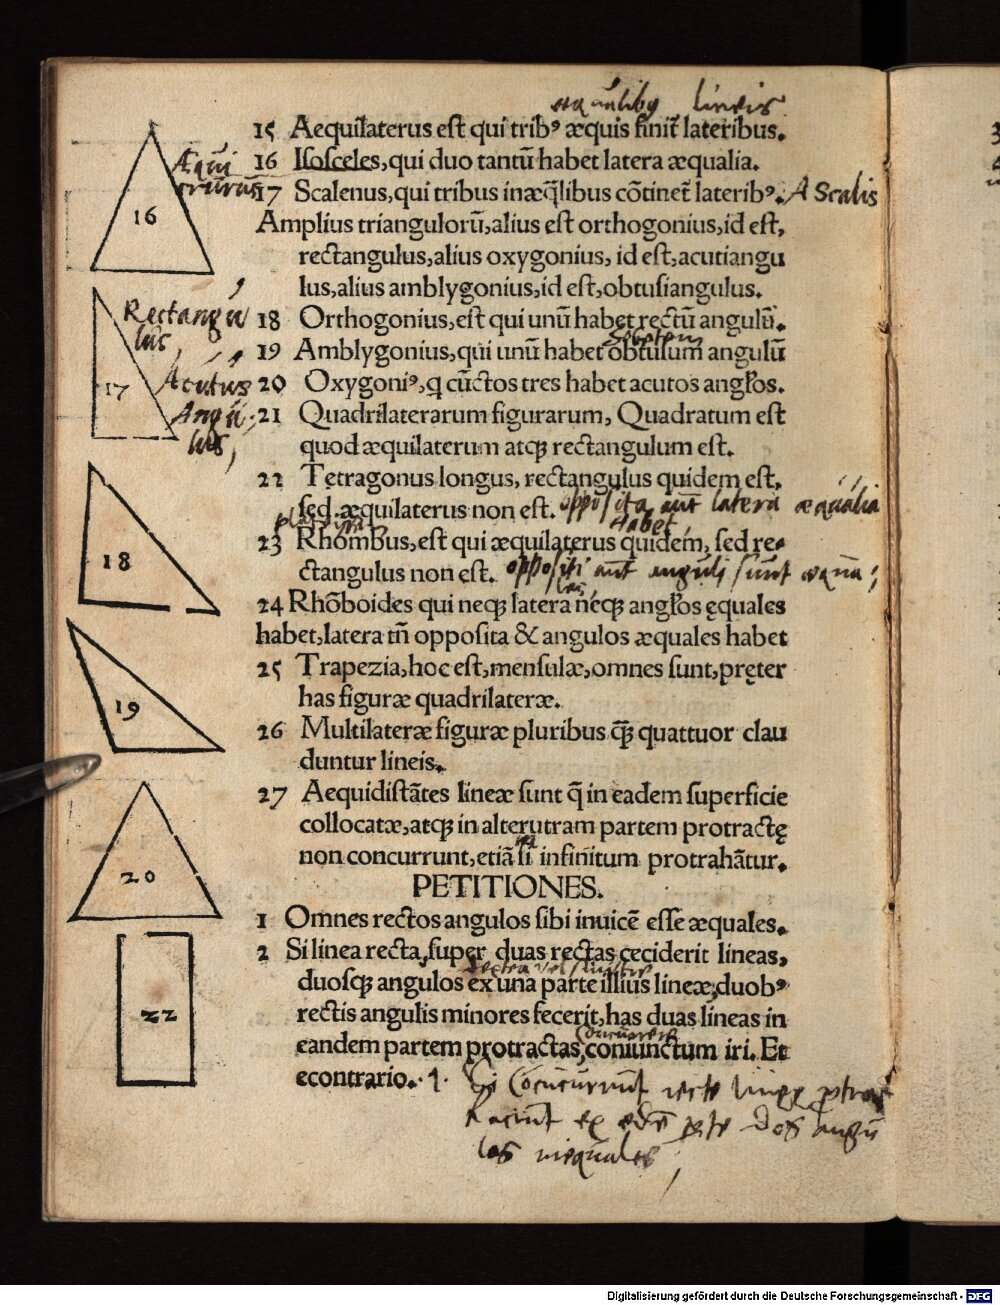 æqualibꝰ lineis
15 Aequilaterus est qui tribꝰ æquis finit̃ lateribus.
16
Æqui
crurus
16 Isosceles, qui duo tantũ habet latera æqualia.
17 Scalenus, qui tribus inæq̃libus cõtinet̃ lateribꝰ. A Scalis
Amplius triangulorũ, alius est orthogonius, id est,
rectangulus, alius oxygonius, id est, acutiangu
lus, alius amblygonius, id est, obtusiangulus.
Rectangu
lus,
18 Orthogonius, est qui unũ habet rectũ angulũ.
19 Amblygonius, qui unũ habet obtusum angulũ
17
Acutus
Angu
lus,
20 Oxygoniꝰ, q̃ cũctos tres habet acutos angłos.
21 Quadrilaterarum figurarum, Quadratum est
quod æquilaterum atqꝫ rectangulum est.
22 Tetragonus longus, rectangulus quidem est,
sed æquilaterus non est. opposita aũt latera æqualia
habet
18
23 Rhombus, est qui æquilaterus quidem, sed re-
ctangulus non est. oppositi aũt anguli sunt
24 Rhõboides qui neqꝫ latera neqꝫ angłos ęquales
habet, latera tñ opposita & angulos æquales habet
19
25 Trapezia, hoc est, mensulæ, omnes sunt, pręter
has figuræ quadrilateræ.
26 Multilateræ figuræ pluribus q̃ꝫ quattuor clau
duntur lineis.
20
27 Aequidistãtes lineæ sunt q̃ in eadem superficie
collocatæ, atqꝫ in alterutram partem protractę
non concurrunt, etiã si in infinitum protrahãtur.
PETITIONES.
1 Omnes rectos angulos sibi inuicẽ esse æquales.
22
2 Si linea recta, super duas rectas ceciderit lineas,
duosqꝫ angulos ex una parte illius lineæ, duobꝰ
rectis angulis minores fecerit, has duas lineas in
eandem partem protractas, coniunctum iri. Et
econtrario. 1. Si Cocucurrũt recte lineę
ex parte dos angu
los inequales
Digitalisierung gefördert durch die Deutsche Forschungsgemeinschaft - DFG